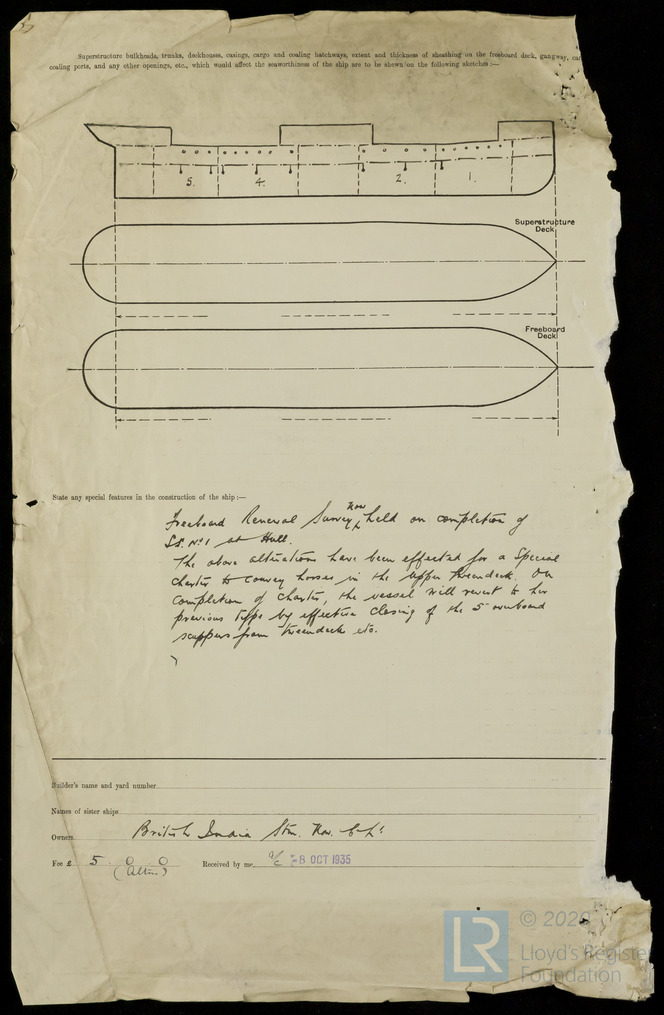 Superstructure bulkheads, trunks, deckhouses, casings, cargo and coaling hatchways, extent and thickness of sheathing on the freeboard deck, gangway,
coaling ports, and any other openings, etc., which would affect the seaworthiness of the ship are to be shewn on the following sketches :—
5. 4. 2. 1.
Superstructure
Deck
Freeboard
Deck
State any special features in the construction of the ship :—
Freeboard Renewal Survey now held on completion of
S.S. No 1 at Hull.
The above alterations have been effected for a Special
Charter to convey horses in the upper tweendeck. On
completion of Charter, the vessel will revert to her
previous type by effective closing of the 5 overboard
scuppers from tweendeck etc.
Builder's name and yard number
Names of sister ships
Owners British India Stm. Nav. Co Ld
Fee £ 5 . 0 . 0 Received by me
(Altns)
-8 OCT 1935
LR
© 2020
Lloyd's Register
Foundation